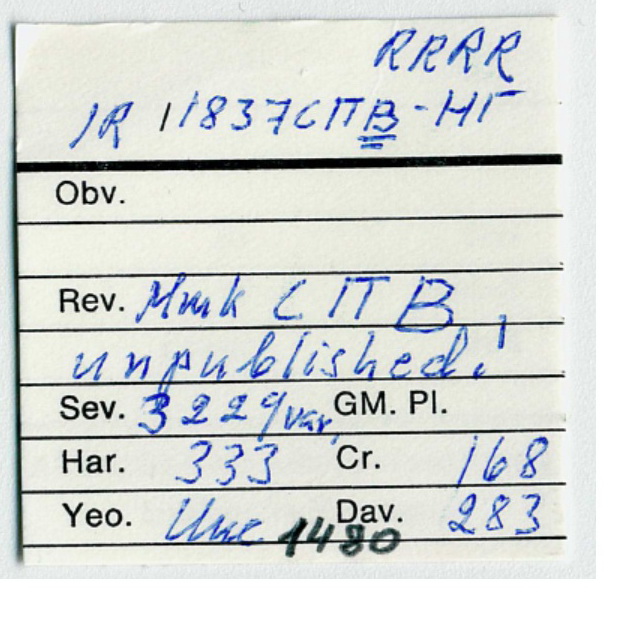 RRRR
1R 11837СПВ-НГ
Obv.
Rev. Mmk СПВ
unpublished!
Sev. 3229var. GM. Pl.
Har. 333 Cr. 168
Yeo. Unc Dav. 283
1480